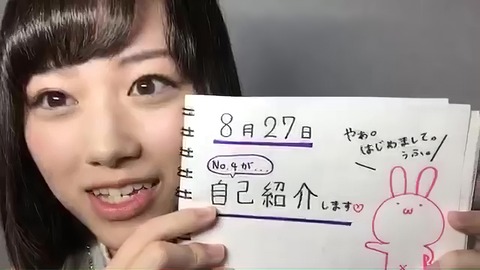 8月27日
No.4が...
自己紹介します♡
やぁ。
はじめまして。
うふ。